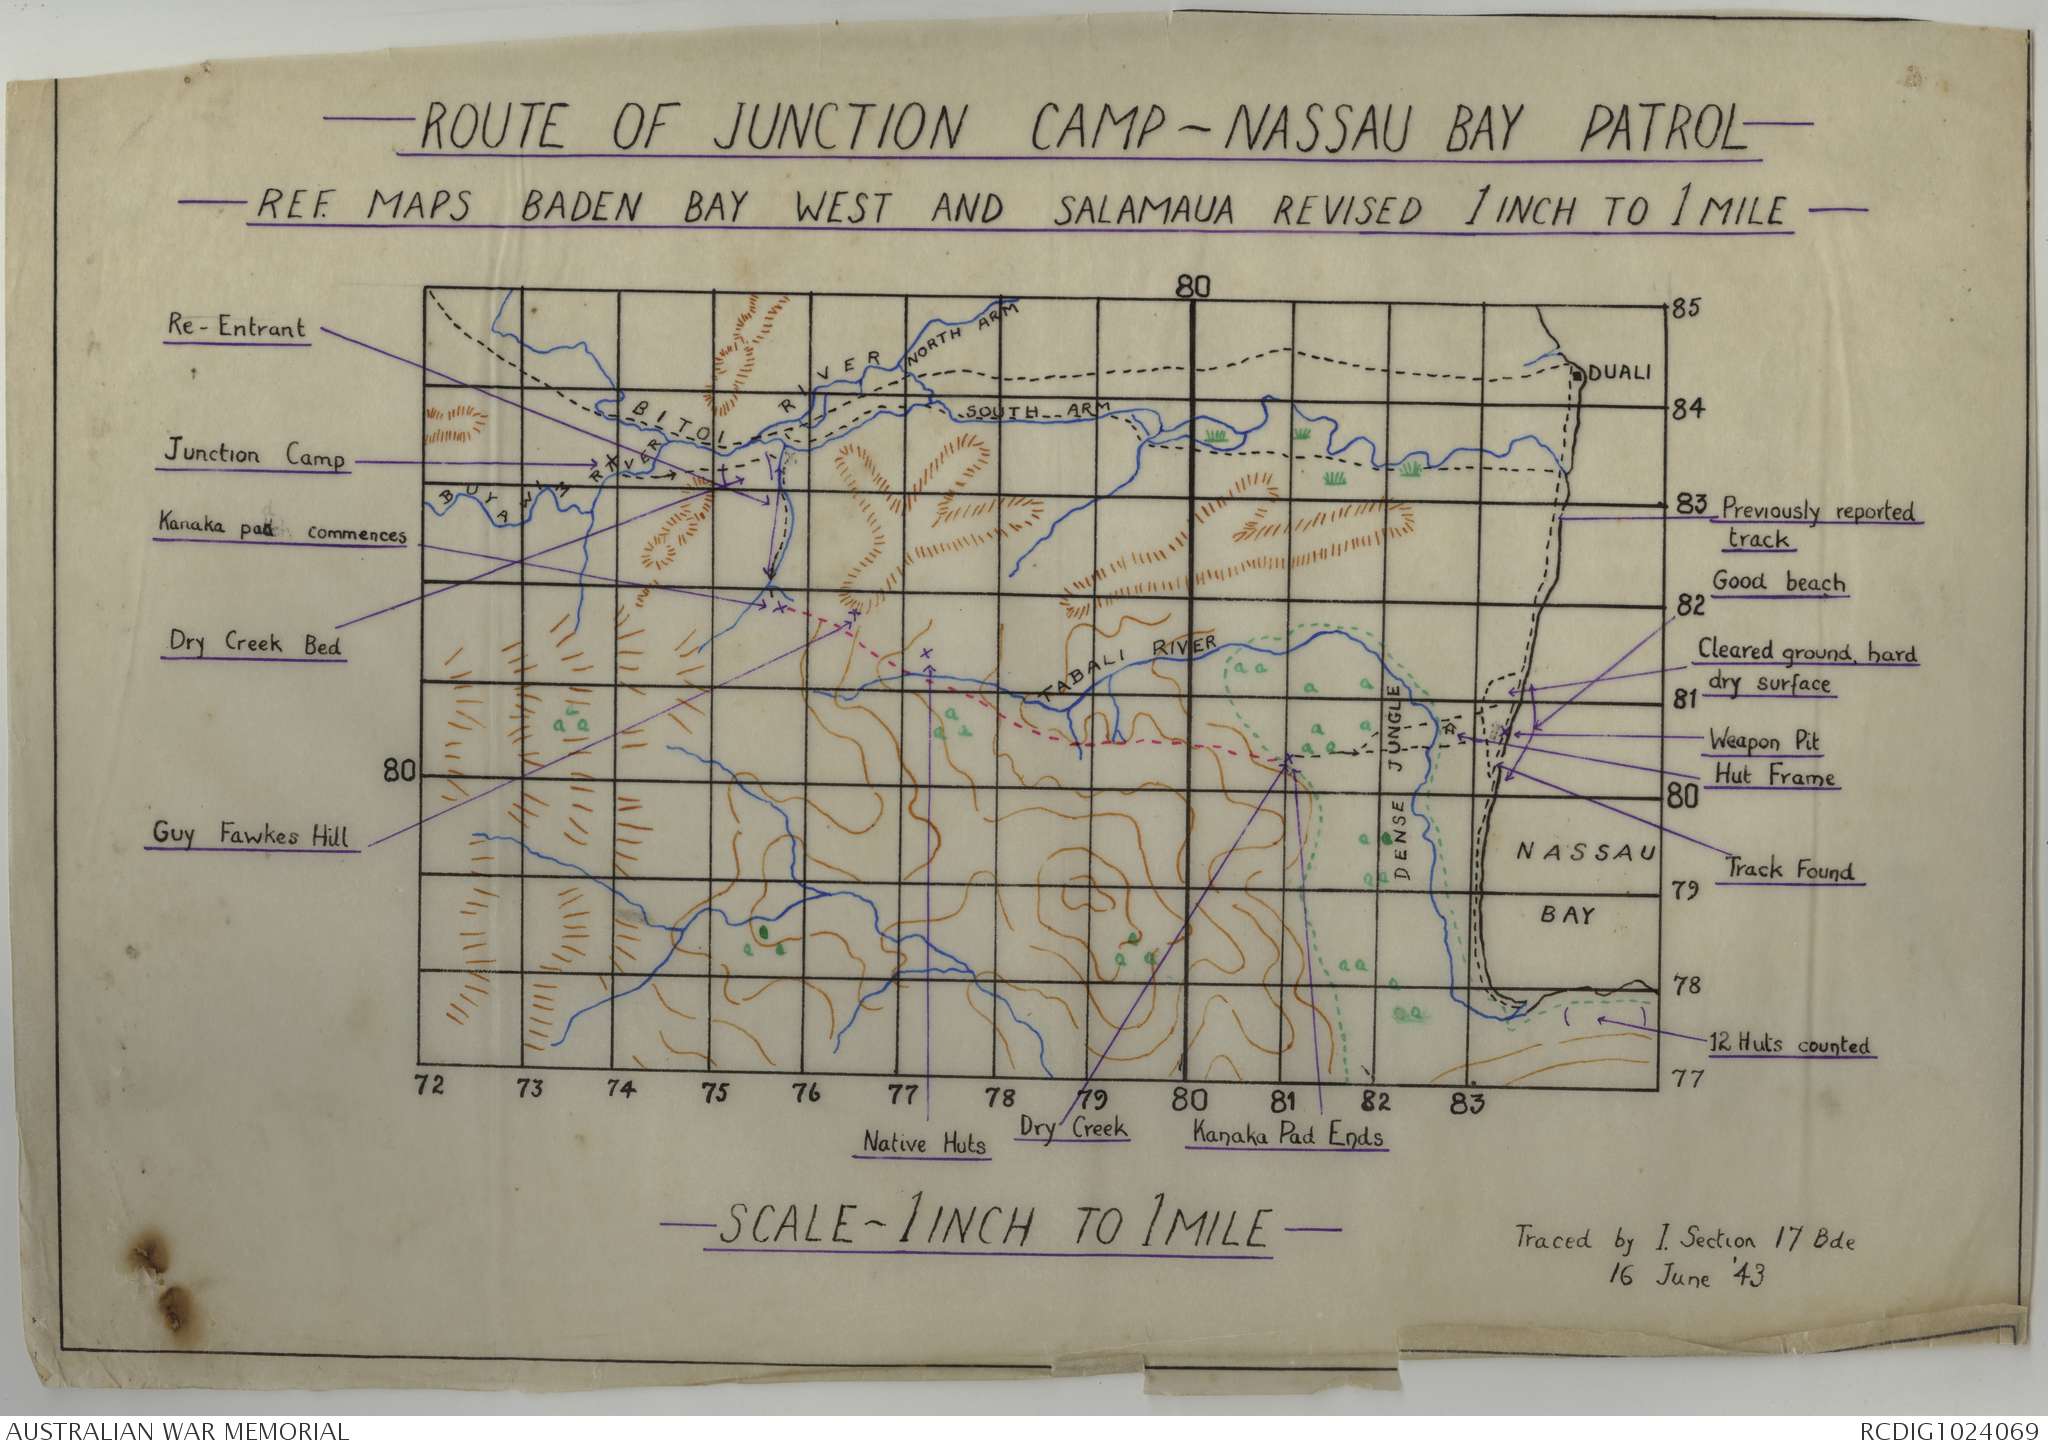 ROUTE OF JUNCTION CAMP ~ NASSAU BAY PATROL
REF. MAPS BADEN BAY WEST AND SALAMAUA REVISED 1 INCH TO 1 MILE
80
Re-Entrant
NORTH ARM
85
RIVER
DUALI
BITOI
SOUTH ARM
84
Junction Camp
BUYAWIM RIVER
83
Previously reported
track
Kanaka pad commences
Good beach
82
Dry Creek Bed
TABALI RIVER
Cleared ground, hard
dry surface
81
DENSE JUNGLE
Weapon Pit
Hut Frame
80
80
Guy Fawkes Hill
NASSAU
BAY
Track Found
79
78
12 Huts counted
77
72 73 74 75 76 77 78 79 80 81 82 83
Native Huts
Dry Creek
Kanaka Pad Ends
SCALE ~ 1 INCH TO 1 MILE
Traced by I. Section 17 Bde
16 June '43
AUSTRALIAN WAR MEMORIAL
RCDIG1024069